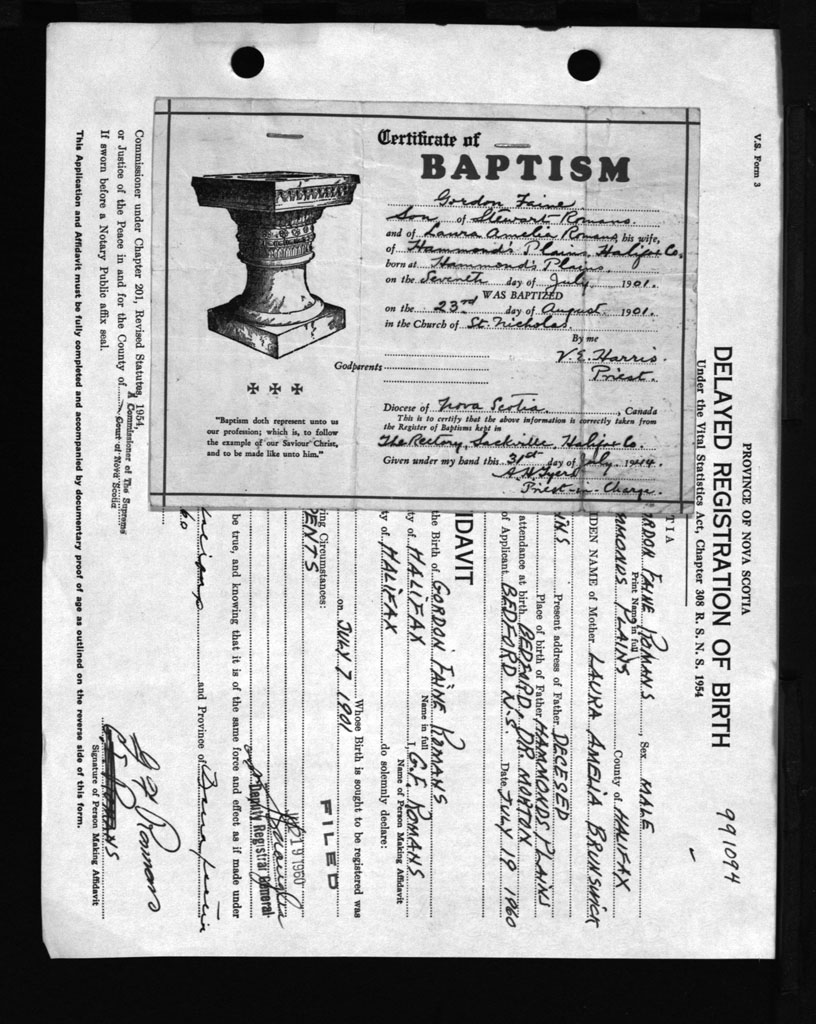 Certificate of
BAPTISM
Gordon Faine
Son of Stewart Romans
and of Laura Amelia Romans, his wife,
of Hammond's Plains, Halifax Co.
born at Hammond's Plains
on the Seventh day of July 1901.
WAS BAPTIZED
on the 23rd day of August 1901.
in the Church of St. Nicholas
By me
V. E. Harris
Priest.
Godparents
Diocese of Nova Scotia, Canada
This is to certify that the above information is correctly taken from
the Register of Baptisms kept in
The Rectory, Sackville, Halifax Co.
Given under my hand this 31st day of July 1944.
Priest-in-Charge.
"Baptism doth represent unto us
our profession; which is, to follow
the example of our Saviour Christ,
and to be made like unto him."
V.S. Form 3
991094
PROVINCE OF NOVA SCOTIA
DELAYED REGISTRATION OF BIRTH
Under the Vital Statistics Act, Chapter 308 R. S. N. S. 1954
TIA
RDON FAINE ROMANS, Sex MALE
Print Name in full
MMONDS PLAINS County of HALIFAX
IDEN NAME of Mother LAURA AMELIA BRUNSWICK
Present address of Father DECESED
INS Place of birth of Father HAMMONDS PLAINS
attendance at birth BEDFORD DR MORTON
of Applicant BEDFORD N.S. Date JULY 19 1960
IDAVIT
the Birth of GORDON FAINE ROMANS
Name in full
ty of HALIFAX I, G.F. ROMANS
Name of Person Making Affidavit
ty of HALIFAX do solemnly declare:
Whose Birth is sought to be registered was
on JULY 7 1901
ing Circumstances:
DENTS
FILED
19 1960
Deputy Registrar General
be true, and knowing that it is of the same force and effect as if made under
and Province of
60
Signature of Person Making Affidavit
Commissioner under Chapter 201, Revised Statutes, 1954,
A Commissioner of The Supreme
Court of Nova Scotia
or Justice of the Peace in and for the County of
If sworn before a Notary Public affix seal.
This Application and Affidavit must be fully completed and accompanied by documentary proof of age as outlined on the reverse side of this form.